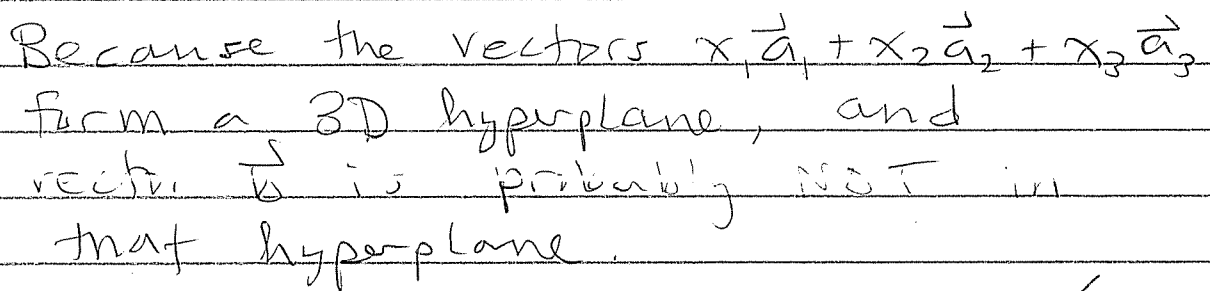 Because the vectors x₁a⃗₁ + x₂a⃗₂ + x₃a⃗₃
form a 3D hyperplane, and
vector b⃗ is probably NOT in
that hyperplane.